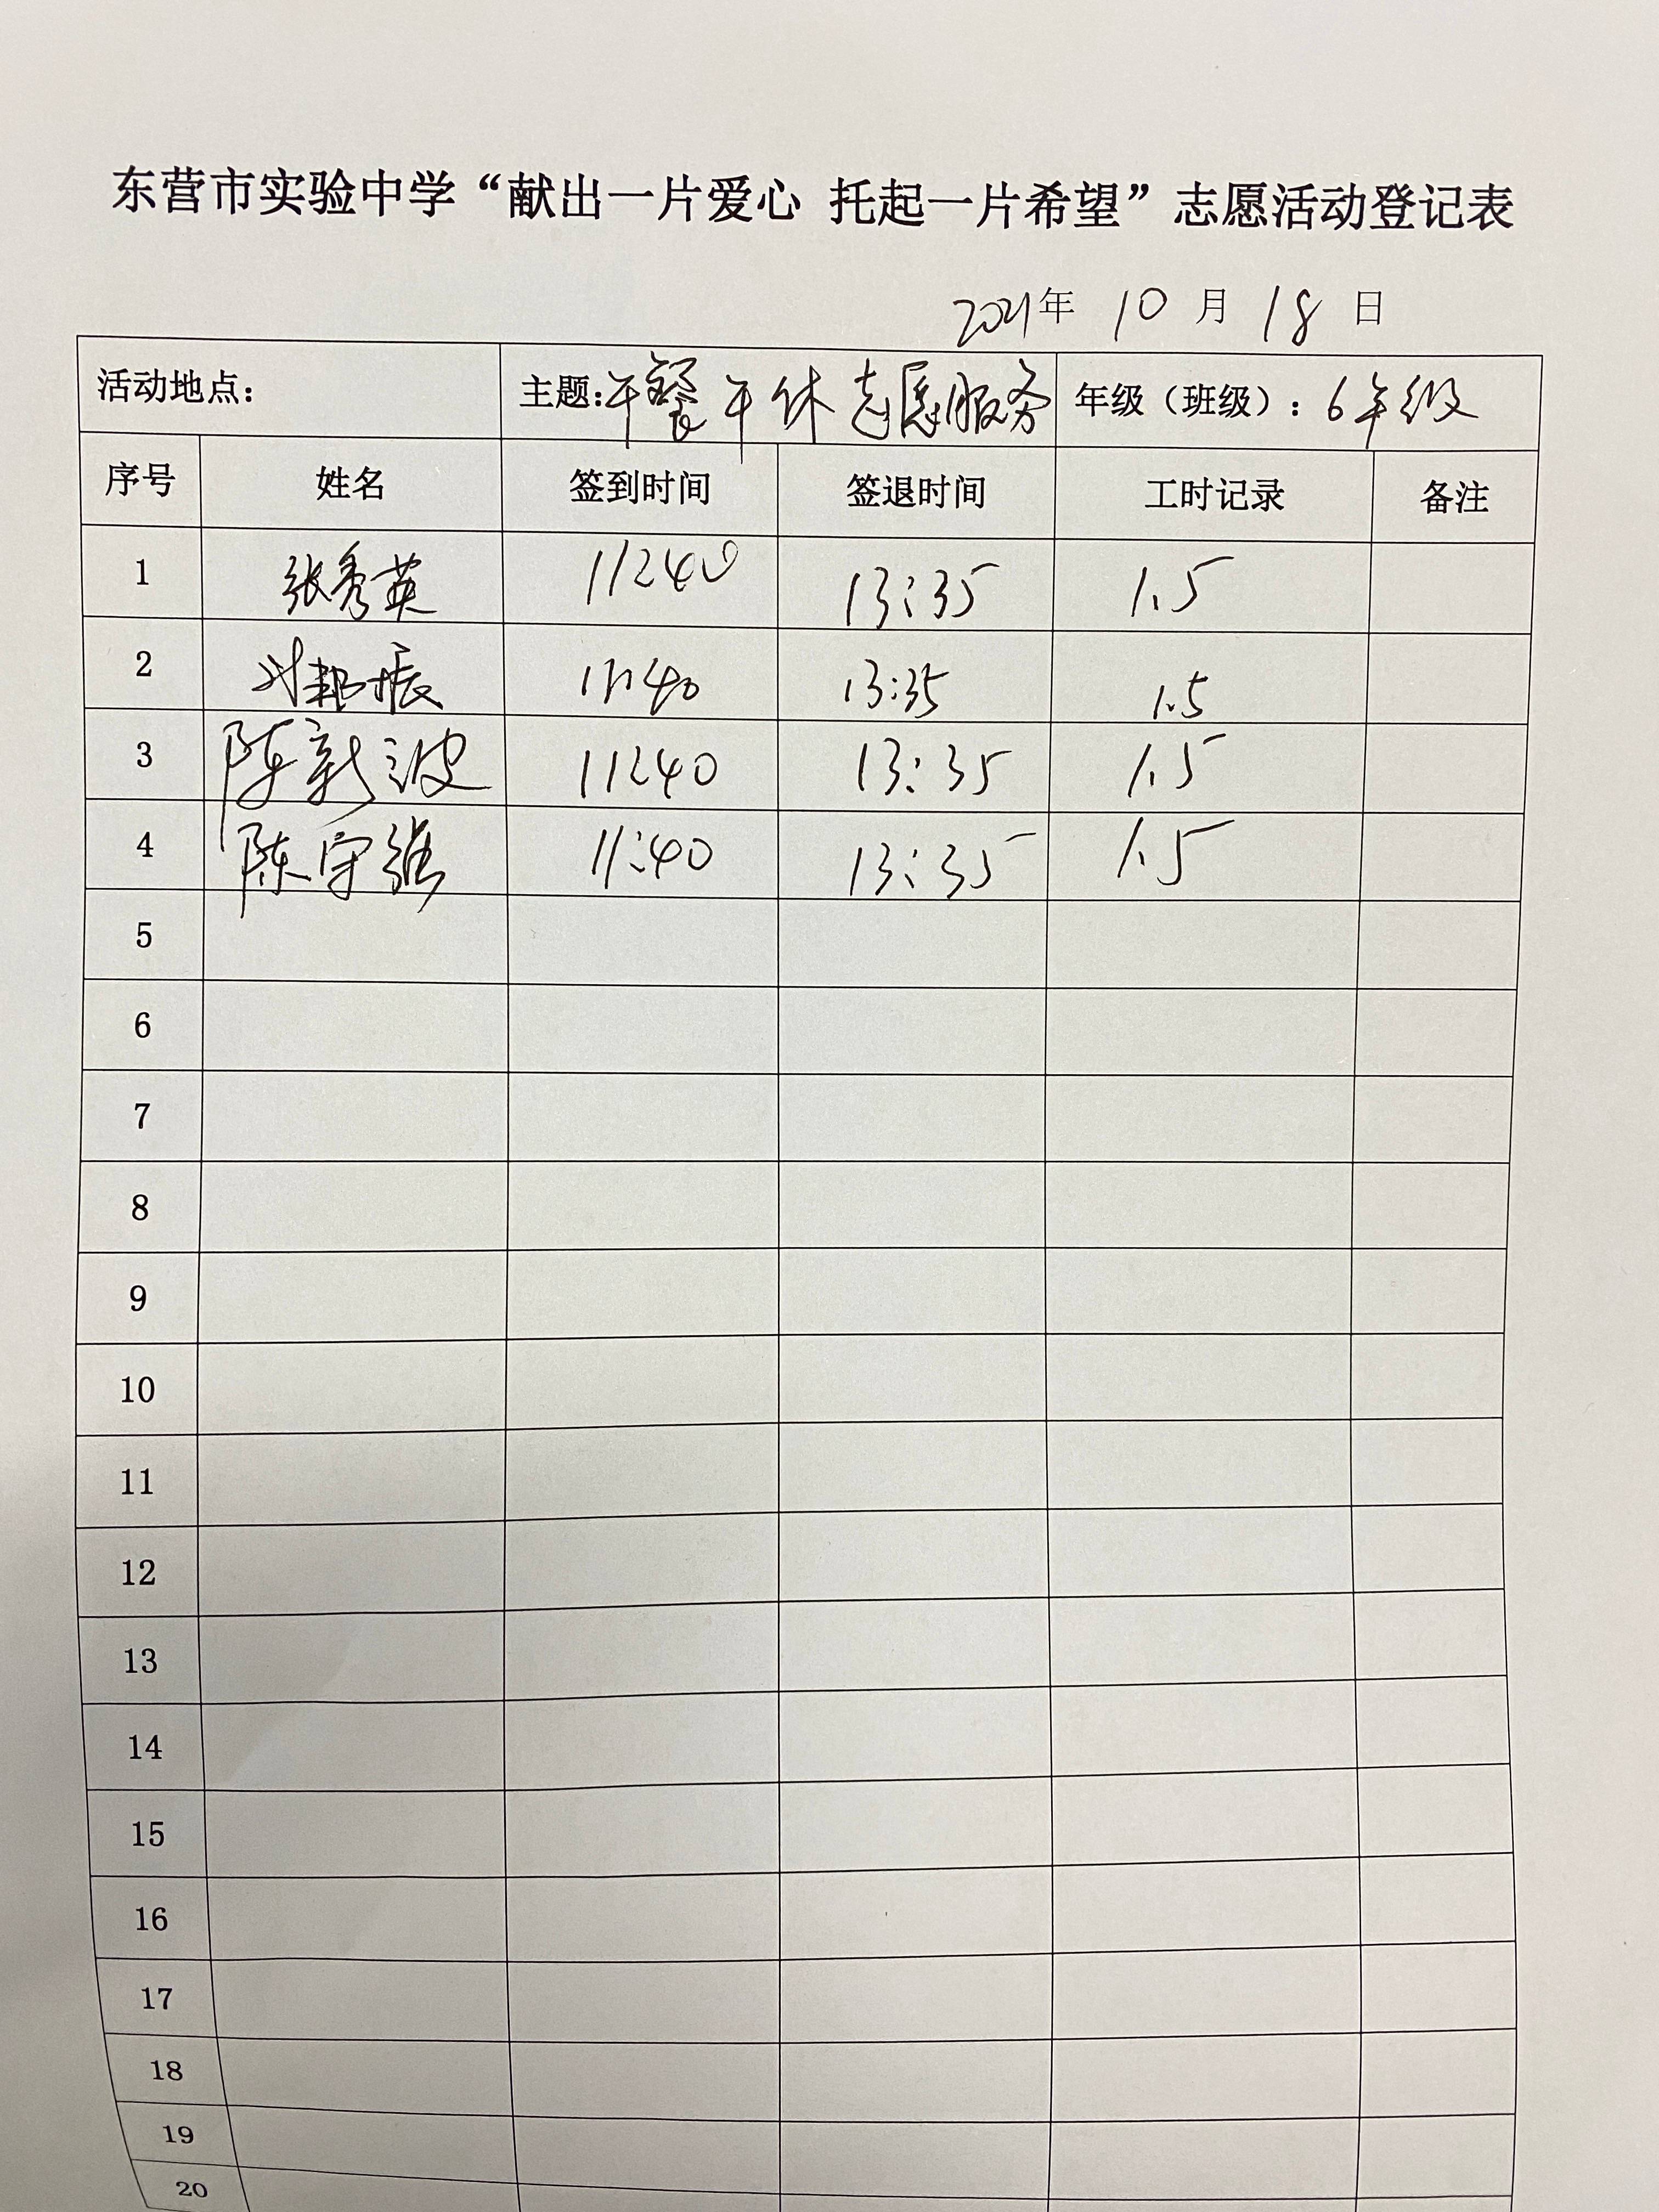 东营市实验中学“献出一片爱心 托起一片希望”志愿活动登记表
2021年 10 月 18 日
活动地点： 主题:午餐午休志愿服务 年级（班级）：6年级
序号 姓名 签到时间 签退时间 工时记录 备注
1 张秀英 11:40 13:35 1.5
2 11:40 13:35 1.5
3 陈新波 11:40 13:35 1.5
4 陈守强 11:40 13:35 1.5
5
6
7
8
9
10
11
12
13
14
15
16
17
18
19
20